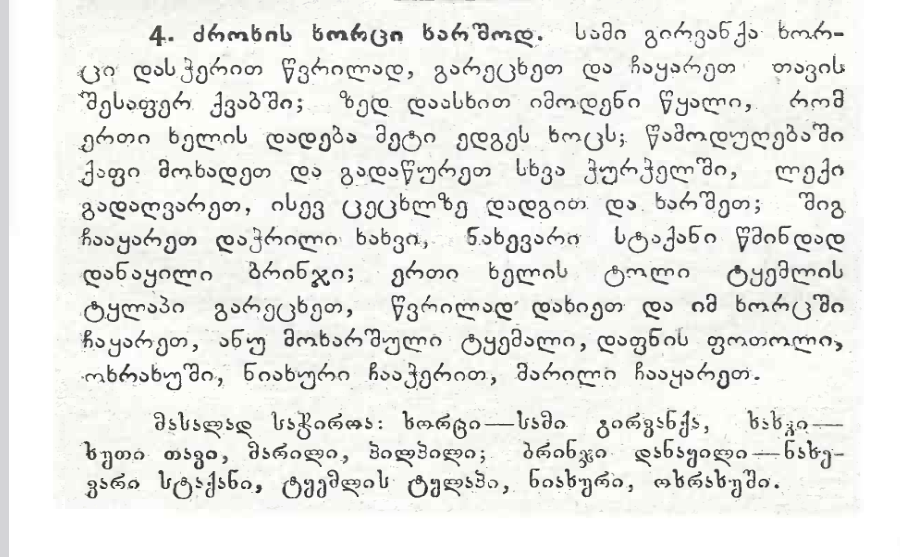 4. ძროხის ხორცი ხარშოდ. სამი გირვანქა ხორ-
ცი დასჭერით წვრილად, გარეცხეთ და ჩაყარეთ თავის
შესაფერ ქვაბში; ზედ დაასხით იმოდენი წყალი, რომ
ერთი ხელის დადება მეტი ედგეს ხოცს; წამოდუღებაში
ქაფი მოხადეთ და გადაწურეთ სხვა ჭურჭელში, ლექი
გადაღვარეთ, ისევ ცეცხლზე დადგით და ხარშეთ; შიგ
ჩააყარეთ დაჭრილი ხახვი, ნახევარი სტაქანი წმინდად
დანაყილი ბრინჯი; ერთი ხელის ტოლი ტყემლის
ტყლაპი გარეცხეთ, წვრილად დახიეთ და იმ ხორცში
ჩაყარეთ, ანუ მოხარშული ტყემალი, დაფნის ფოთოლი,
ოხრახუში, ნიახური ჩააჭერით, მარილი ჩააყარეთ.
მასალად საჭიროა: ხორცი—სამი გირვანქა, ხახვი—
ხუთი თავი, მარილი, პილპილი; ბრინჯი დანაყილი—ნახე-
ვარი სტაქანი, ტყემლის ტყლაპი, ნიახური, ოხრახუში.